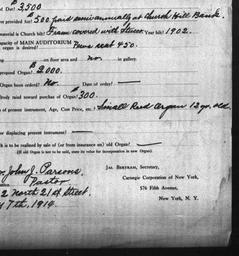 Due? 3,500
$500 paid semi-annually at Church Hill Bank.
material is Church bit? Fram covered with Stucco Year bit? 1902.
capacity of MAIN AUDITORIUM
organ is desired? Pews seat 450.
on floor area and no. in gallery.
proposed Organ? $2,000.
Organ been ordered? No. Date of order?
already raised toward purchase of Organ? $300.
of present instrument, Age, Cost price, etc. Small Reed Organ 12 yr. old.
displacing present instrument?
is to be realized by sale of (or from insurance on) old Organ?
(If old Organ is not to be sold, state its value for incorporation in new Organ)
John J. Parsons
Pastor
2 North 21st Street.
7th, 1914.
JAS. BERTRAM, Secretary,
Carnegie Corporation of New York,
576 Fifth Avenue,
New York, N. Y.